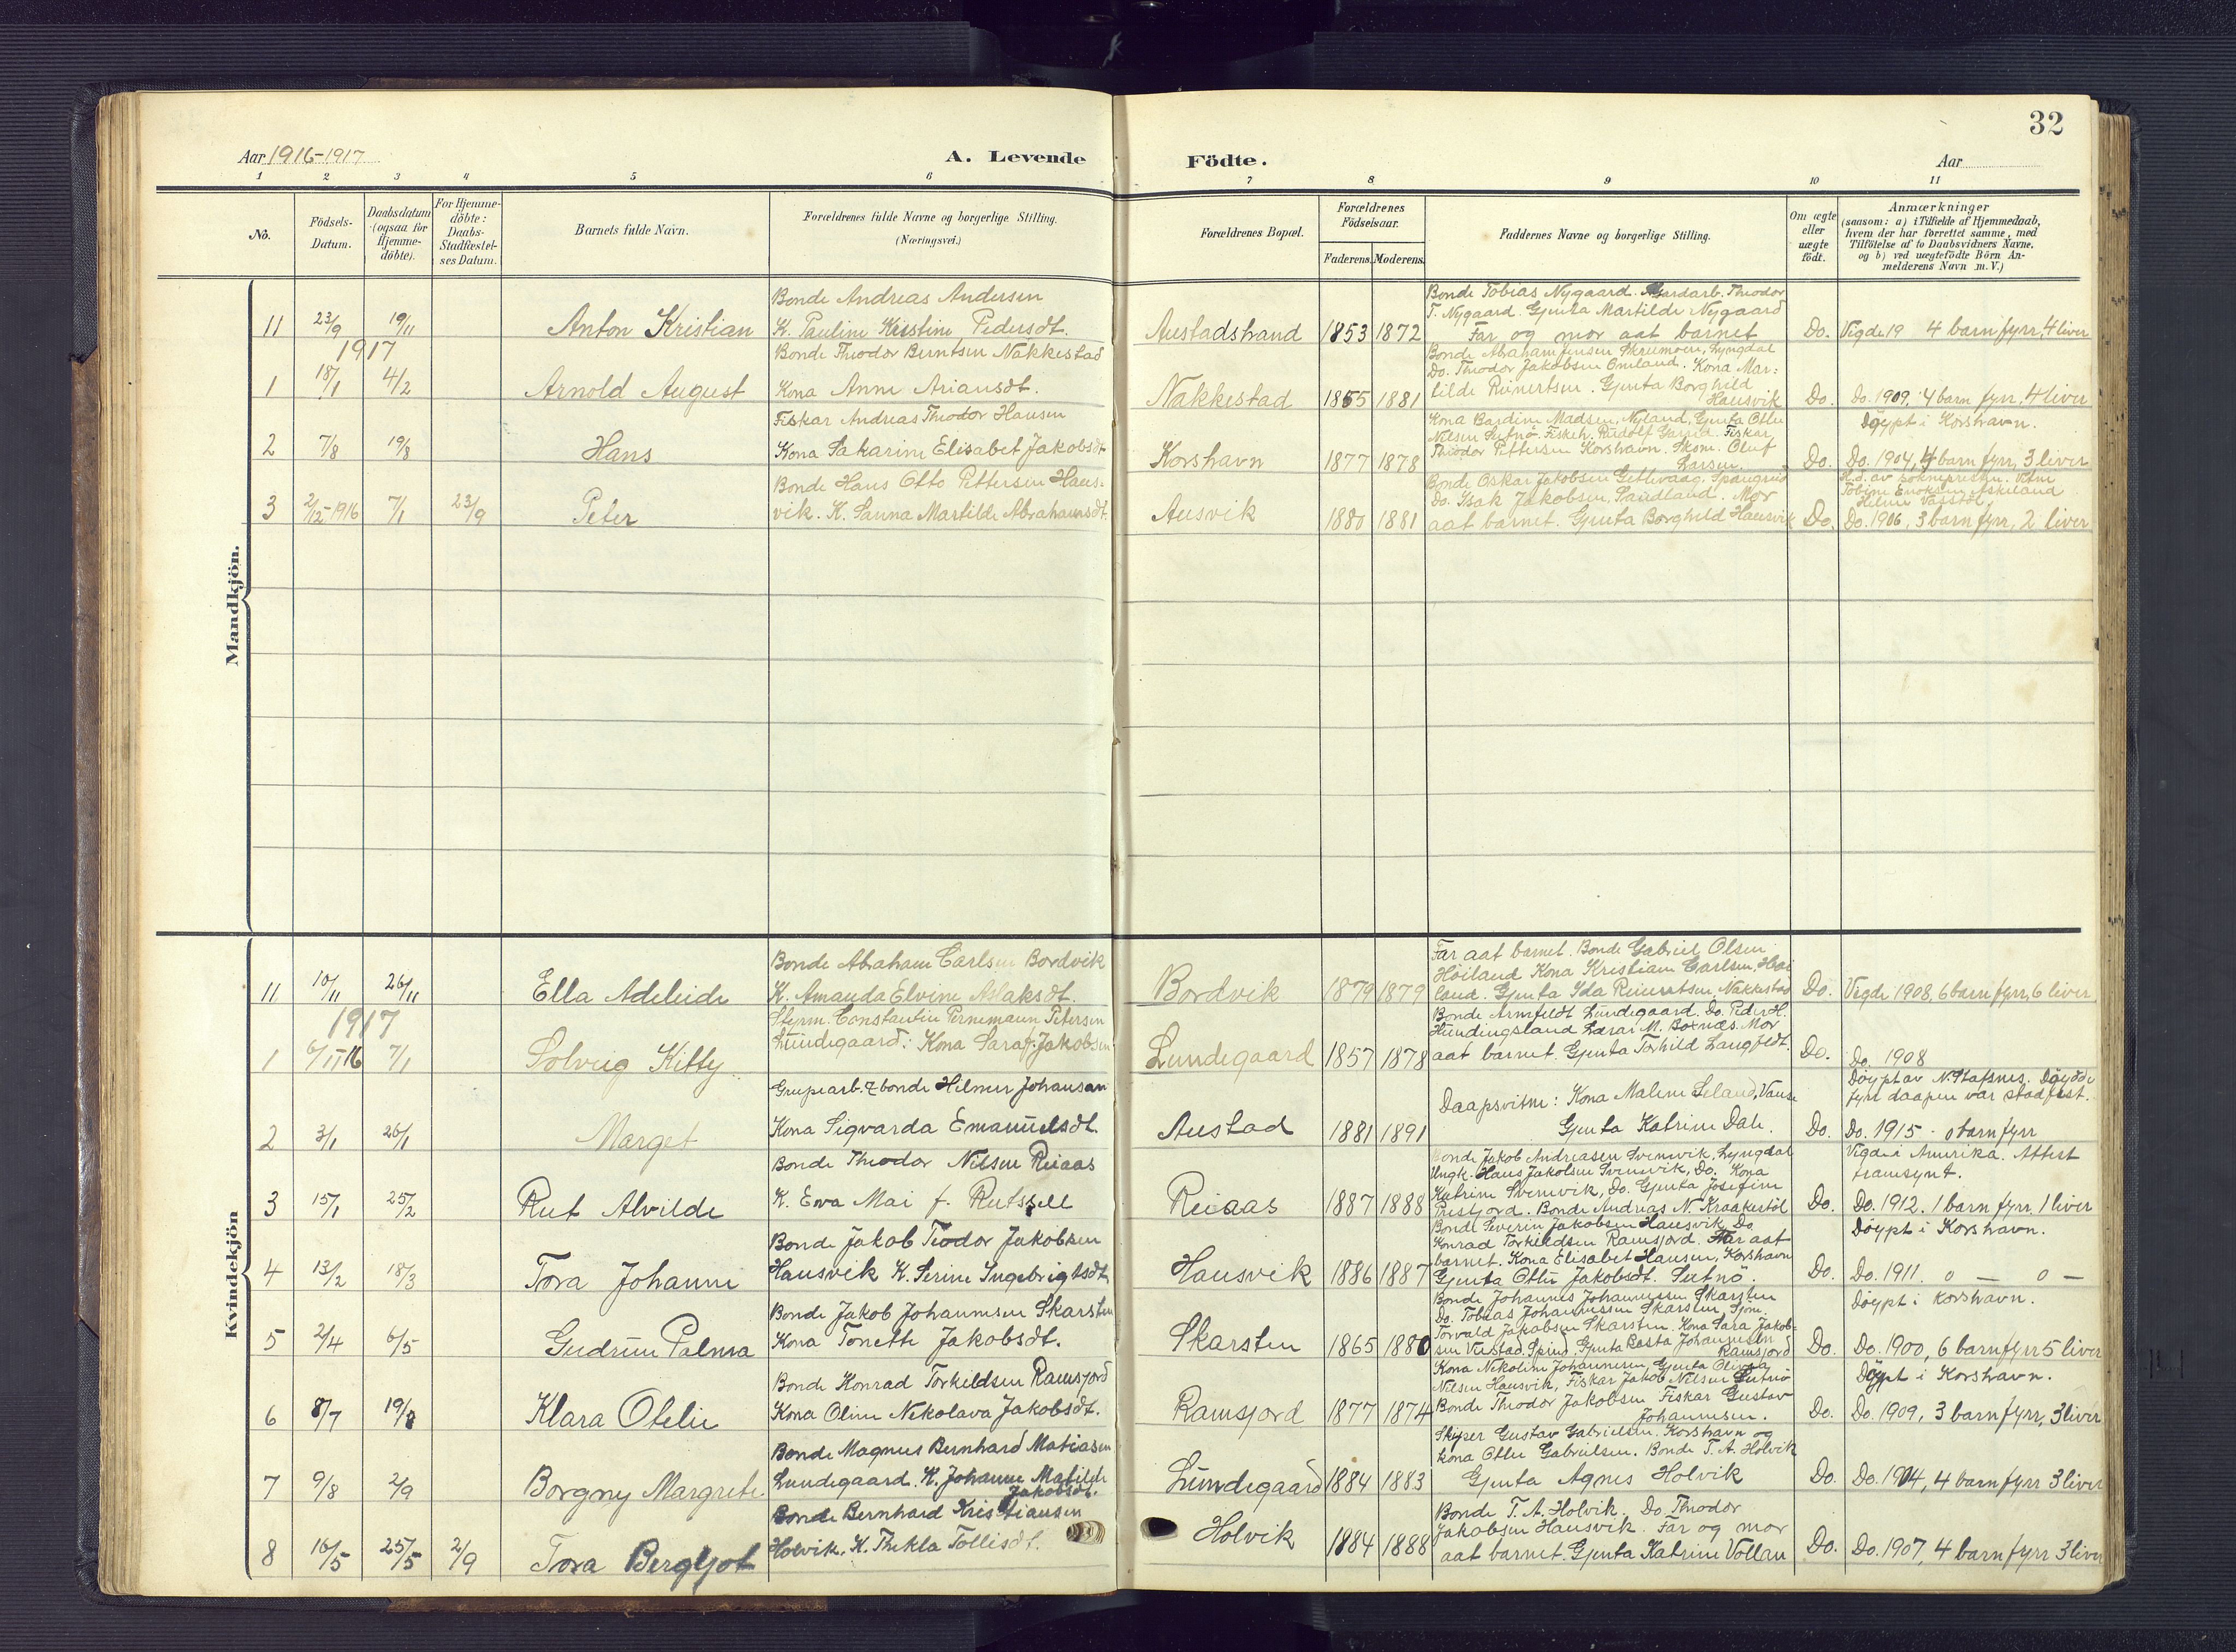 32
Aar 1916-1917
A. Levende Födte.
Aar
1 2 3 4 5 6 7 8 9 10 11
No.
Födsels-
Datum.
Daabsdatum
(ogsaa for
Hjemme-
döbte).
For Hjemme-
döbte:
Daabs-
Stadfæstel-
ses Datum.
Barnets fulde Navn.
Forældrenes fulde Navne og borgerlige Stilling.
(Næringsvei.)
Forældrenes Bopæl.
Forældrenes
Födselsaar.
Faderens. Moderens.
Faddernes Navne og borgerlige Stilling.
Om ægte
eller
uægte
födt.
Anmærkninger
(saasom: a) i Tilfælde af Hjemmedaab,
hvem der har forrettet samme, med
Tilföielse af to Daabsvidners Navne,
og b) ved uægtefödte Börn An-
melderens Navn m.V.)
Mandkjön.
11 23/9 19/11 Anton Kristian
Bonde Andreas Andersen
K. Pauline Kristine Pedersdt.
Austadstrand 1853 1872
Bonde Tobias Nygaard. Theodor
T. Nygaard. Gjenta Martilde Nygaard
Far og mor aat barnet
Do. Vigde 19 4 barn fyrr, 4 liver
1917
1 18/1 4/2 Arnold August
Bonde Theodor Berntsen Nakkestad
Kona Anne Ariansdt.
Nakkestad 1855 1881
Bonde Abaham Jensen Skreumoen, Lyngdal
Do. Theodor Jakobsen Omland. Kona Mar:
tilde Reinertsen. Gjenta Borghild
Hausvik
Do. Do. 1909, 4 barn fyrr, 4 liver
2 7/8 19/8 Hans
Fiskar Andreas Theodor Hansen
Kona Sakarine Elisabet Jakobsdt.
Korshavn 1877 1878
Kona Bardine Madsen, Nyland, Gjenta Otlie
Nilsen Sutnö. Fiskeh. Rudolf Fiskar
Theodor Pettersen Korshavn. Skom. Oluf
Larsen.
Do. Döypt i Korshavn.
Do. 1904, 4 barn fyrr, 3 liver
3 2/12-1916 7/1 23/9 Peter
Bonde Hans Otto Pettersen Haus-
vik. K. Sanna Martilde Abrahamsdt.
Ausvik 1880 1881
Bonde Oskar Jakobsen Spangreid
Do. Isak Jakobsen, Sandland. Mor
aat barnet. Gjenta Borghild Hausvik
Do.
H.d. av soknepresten. Vitne
Tobine Enoksen Askeland
Helene
Do. 1906, 3 barn fyrr, 2 liver
Kvindekjön
11 10/11 26/11 Ella Adeleide
Bonde Abraham Carlsen Bordvik
K. Amanda Elvine Aslaksdt.
Bordvik 1879 1879
Far aat barnet. Bonde Gabriel Olsen
Höiland Kona Kristiane Carlsen, Höi
land. Gjenta Ida Reinertsen, Nakkestad
Do. Vigde 1908, 6 barn fyrr, 6 liver
1917
1 6/11 16 7/1 Solveig Kitty
Styrm. Constantin Pernemann Petersen
Lundegaard. Kona Sara f. Jakobsen
Lundegaard 1857 1878
Bonde Armfeldt Lundegaard. Do. Peder H.
Hundingsland Lærar M. Boxnæs. Mor
aat barnet. Gjenta Torhild Langfeldt.
Do. Do. 1908
2 3/1 26/1 Marget
Grupearb. & bonde Hilmer Johansen
Kona Sigvarda Emanuelsdt.
Austad 1881 1891
Daapsvitne: Kona Malene Seland, Vanse
Gjenta Katrine Dale.
Do.
Döypt av N. Stafsnes. Döydde
fyrr daapen var stadfest.
Do. 1915. 0 barn fyrr
3 15/1 25/2 Rut Alvilde
Bonde Theodor Nilsen Reiaas
K. Eva Mai f. Rutszell
Reiaas 1887 1888
Bonde Jakob Andreasen Svennevik, Lyngdal
Ungk. Hans Jakobsen Svennevik, Do. Kona
Katrine Svennevik, Do. Gjenta Josefine
Presfjord. Bonde Andreas N. Kraakestöl
Do.
Vigde i Amerika. Attest
framsynt.
Do. 1912. 1 barn fyrr, 1 liver
4 13/2 18/3 Tora Johanne
Bonde Jakob Teodor Jakobsen
Hausvik K. Serine Ingebrigtsdt.
Hausvik 1886 1887
Bonde Severin Jakobsen Hausvik, Do.
Konrad Torkildsen Ramsjord. Far aat
barnet. Kona Elisabet Hansen, Korshavn
Gjenta Otlie Jakobsdt. Sutnö.
Do.
Döypt i Korshavn.
Do. 1911. 0 — 0 —
5 2/4 6/5 Gudrun Palma
Bonde Jakob Johannesen Skarsten
Kona Tonette Jakobsdt.
Skarsten 1865 1880
Bonde Johannes Johannessen Skarsten
Do. Tobias Johannessen Skarsten, Sjöm.
Torvald Jakobsen Skarsten. Kona Sara Jakob-
sen Spind. Gjenta Johannesen
Ramsjord
Do.
Döypt i Korshavn.
Do. 1900, 6 barn fyrr 5 liver
6 8/7 19/8 Klara Otelie
Bonde Konrad Torkildsen Ramsjord
Kona Oline Nikolava Jakobsdt.
Ramsjord 1877 1874
Kona Nikoline Johannesen, Gjenta Olivia
Nilsen Hausvik, Fiskar Jakob Nilsen Sutnö
Bonde Theodor Jakobsen Fiskar Gustav
Johannesen.
Do.
Döypt i Korshavn.
Do. 1909, 3 barn fyrr, 3 liver
7 9/8 2/9 Borgny Margrete.
Bonde Magnus Bernhard Matiasen
Lundegaard. K. Johanne Matilde
Jakobsdt.
Lundegaard 1884 1883
Skiper Gustav Gabrielsen. Korshavn og
kona Otlie Gabrielsen. Bonde T. A. Holvik
Gjenta Agnes Holvik
Do. Do. 1904, 4 barn fyrr 3 liver
8 16/5 25/5 2/9 Tora Bergljot
Bonde Bernhard Kristiansen
Holvik. K. Thekla Tollisdt.
Holvik 1884 1888
Bonde T. A. Holvik, Do. Theodor
Jakobsen Hausvik. Far og mor
aat barnet. Gjenta Katrine Vollan
Do. Do. 1907, 4 barn fyrr 3 liver